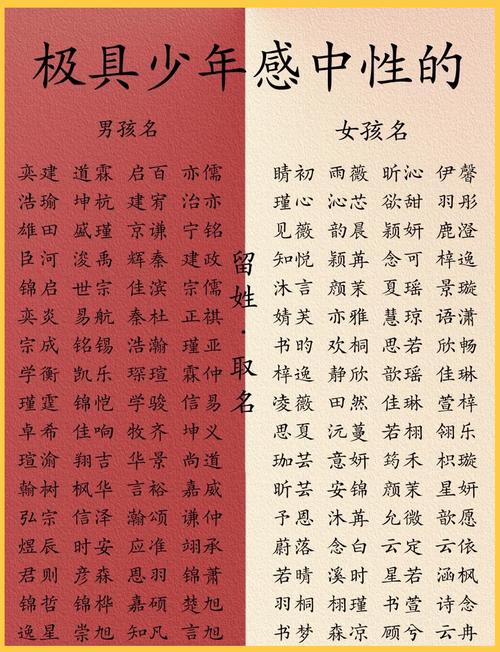 极具少年感中性的
男孩名
奕建 道霖 启百 亦儒
浩瑜 坤杭 建宥 治亦
雄田 盛瑾 京谦 宁铭
臣河 浚禹 辉秦 建政
锦启 世宗 佳滨 宗儒
奕炎 易航 秦杜 正祺
宗成 铭锡 浩瀚 瑾亚
学衡 凯乐 琛瑄 霖仲
瑾霆 锦恺 学骏 信易
卓希 佳响 牧齐 坤义
瑄渝 翔吉 华景 尚道
翰树 枫华 言裕 嘉威
弘宗 信泽 瀚颂 谦仲
煜辰 时安 应准 翊承
君则 彦森 思羽 锦萧
锦哲 锦桦 嘉硕 楚旭
逸星 崇旭 知凡 言旭
留姓·取名
女孩名
晴初 雨薇 昕沁 伊馨
瑾心 沁芯 欲甜 羽彤
见薇 韵晨 颖妍 鹿澄
知悦 颖苒 念可 梓逸
沐言 颜茉 夏瑶 景璇
婧芙 亦雅 慧琼 语潇
书昀 欢桐 思若 欣畅
梓逸 静欣 歆瑶 佳琳
凌薇 田然 佳琳 萱梓
思夏 沅蔓 若栩 翎乐
珈芸 意妍 筠禾 枳璇
昕芸 安锦 颜茉 星妍
予恩 沐苒 允微 歆愿
蔚落 念白 云定 云依
若晴 溪时 星若 涵枫
羽桐 栩瑾 书萱 诗冉
书梦 森凉 顾兮 云冉